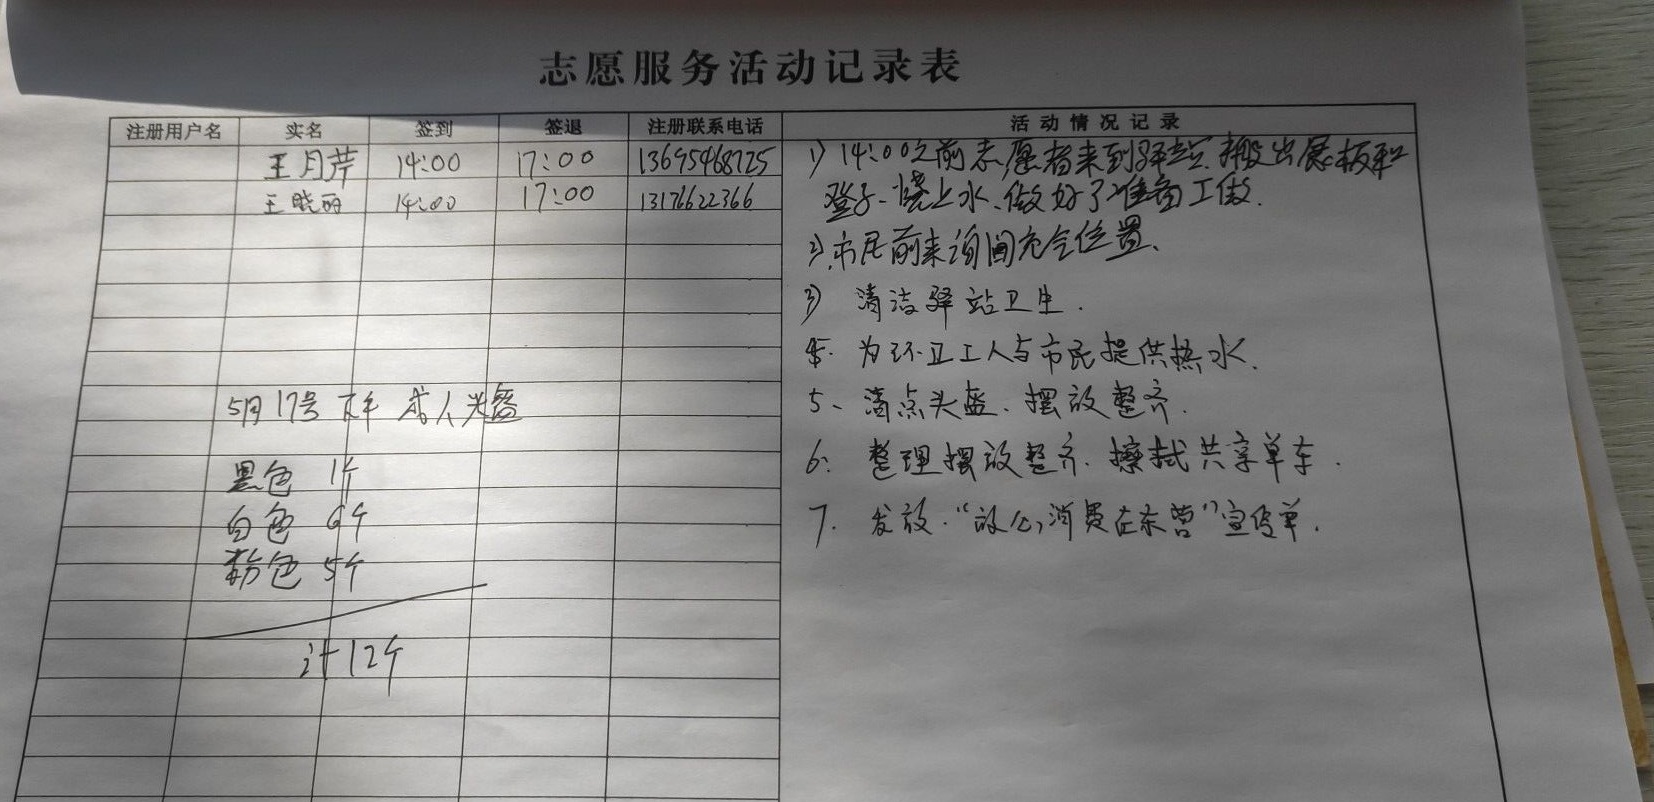 志愿服务活动记录表
注册用户名 实名 签到 签退 注册联系电话 活动情况记录
王月芹 14:00 17:00 13695468725
王晓丽 14:00 17:00 13176622366
1) 14:00之前志愿者来到驿站、搬出展板和
登子、烧上水、做好了准备工做.
2) 市民前来询问充气位置、
3) 清洁驿站卫生.
4. 为环卫工人与市民提供热水.
5、清点头盔、摆放整齐.
6: 整理摆放整齐、擦拭共享单车.
7. 发放."放心消费在东营"宣传单.
5月17号 下午 成人头盔
黑色 1个
白色 6个
粉色 5个
计12个